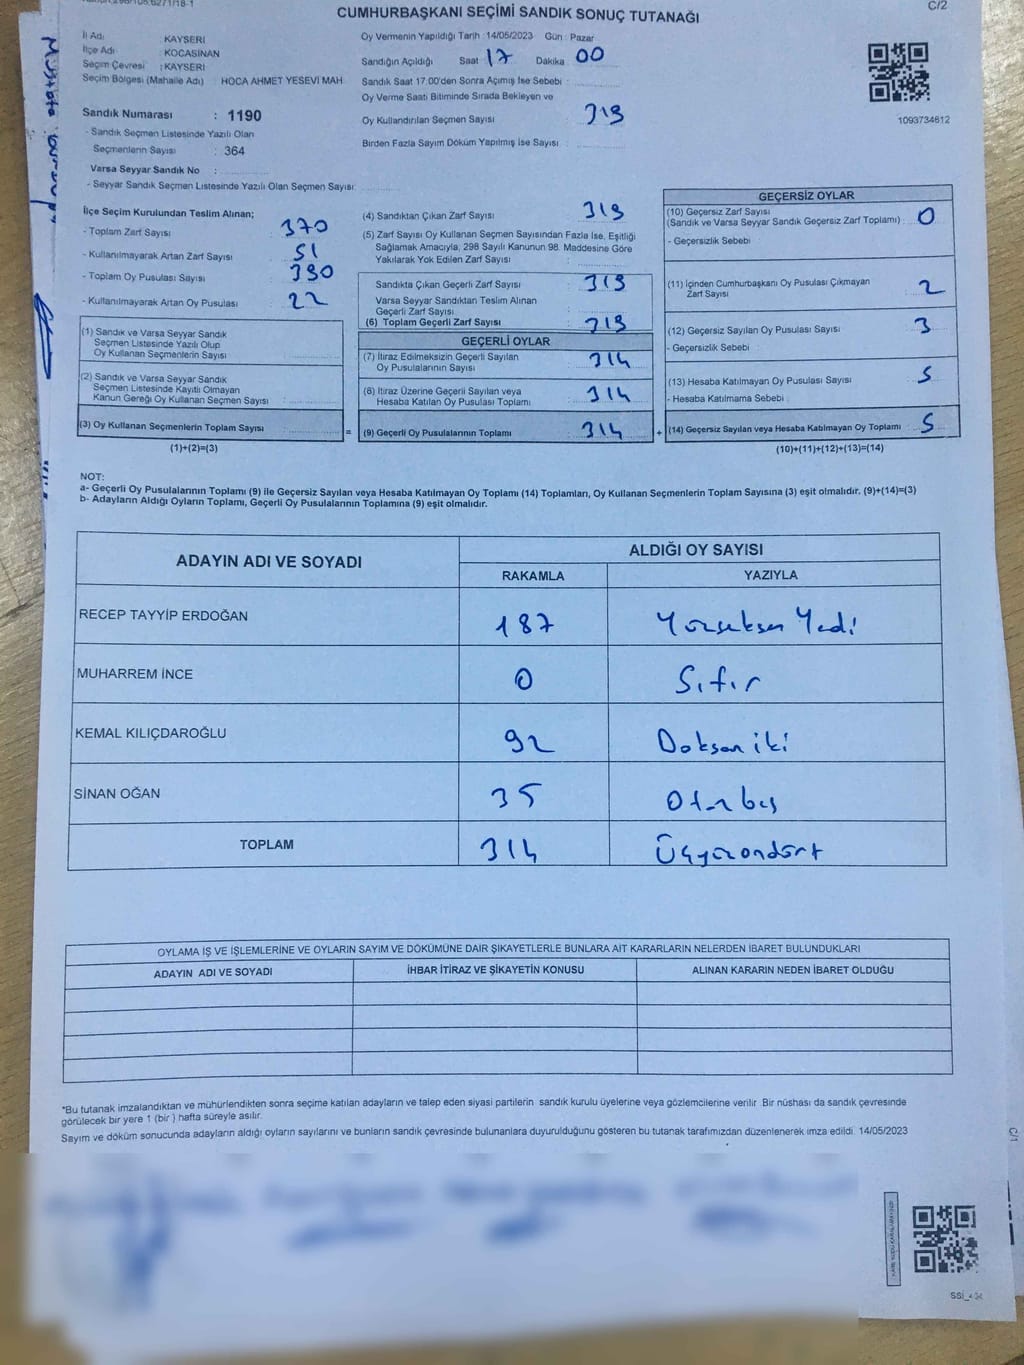 C/2
CUMHURBAŞKANI SEÇİMİ SANDIK SONUÇ TUTANAĞI
İl Adı : KAYSERİ
İlçe Adı : KOCASİNAN
Seçim Çevresi : KAYSERİ
Seçim Bölgesi (Mahalle Adı) : HOCA AHMET YESEVİ MAH
Sandık Numarası : 1190
- Sandık Seçmen Listesinde Yazılı Olan
Seçmenlerin Sayısı : 364
Varsa Seyyar Sandık No :
- Seyyar Sandık Seçmen Listesinde Yazılı Olan Seçmen Sayısı:
Oy Vermenin Yapıldığı Tarih : 14/05/2023 Gün : Pazar
Sandığın Açıldığı Saat 17 Dakika 00
Sandık Saat 17:00'den Sonra Açılmış İse Sebebi :
Oy Verme Saati Bitiminde Sırada Bekleyen ve
Oy Kullandırılan Seçmen Sayısı : 319
Birden Fazla Sayım Döküm Yapılmış İse Sayısı :
1093734612
İlçe Seçim Kurulundan Teslim Alınan;
- Toplam Zarf Sayısı : 370
- Kullanılmayarak Artan Zarf Sayısı : 51
- Toplam Oy Pusulası Sayısı : 390
- Kullanılmayarak Artan Oy Pusulası : 22
(1) Sandık ve Varsa Seyyar Sandık
Seçmen Listesinde Yazılı Olup
Oy Kullanan Seçmenlerin Sayısı :
(2) Sandık ve Varsa Seyyar Sandık
Seçmen Listesinde Kayıtlı Olmayan
Kanun Gereği Oy Kullanan Seçmen Sayısı :
(3) Oy Kullanan Seçmenlerin Toplam Sayısı :
(1)+(2)=(3)
(4) Sandıktan Çıkan Zarf Sayısı : 319
(5) Zarf Sayısı Oy Kullanan Seçmen Sayısından Fazla İse, Eşitliği
Sağlamak Amacıyla, 298 Sayılı Kanunun 98. Maddesine Göre
Yakılarak Yok Edilen Zarf Sayısı :
Sandıkta Çıkan Geçerli Zarf Sayısı : 319
Varsa Seyyar Sandıktan Teslim Alınan
Geçerli Zarf Sayısı :
(6) Toplam Geçerli Zarf Sayısı : 319
GEÇERLİ OYLAR
(7) İtiraz Edilmeksizin Geçerli Sayılan
Oy Pusulalarının Sayısı : 314
(8) İtiraz Üzerine Geçerli Sayılan veya
Hesaba Katılan Oy Pusulası Toplamı : 314
= (9) Geçerli Oy Pusulalarının Toplamı : 314
GEÇERSİZ OYLAR
(10) Geçersiz Zarf Sayısı
(Sandık ve Varsa Seyyar Sandık Geçersiz Zarf Toplamı) : 0
- Geçersizlik Sebebi
(11) İçinden Cumhurbaşkanı Oy Pusulası Çıkmayan
Zarf Sayısı : 2
(12) Geçersiz Sayılan Oy Pusulası Sayısı : 3
- Geçersizlik Sebebi :
(13) Hesaba Katılmayan Oy Pusulası Sayısı : 5
- Hesaba Katılmama Sebebi
+ (14) Geçersiz Sayılan veya Hesaba Katılmayan Oy Toplamı : 5
(10)+(11)+(12)+(13)=(14)
NOT:
a- Geçerli Oy Pusulalarının Toplamı (9) ile Geçersiz Sayılan veya Hesaba Katılmayan Oy Toplamı (14) Toplamları, Oy Kullanan Seçmenlerin Toplam Sayısına (3) eşit olmalıdır. (9)+(14)=(3)
b- Adayların Aldığı Oyların Toplamı, Geçerli Oy Pusulalarının Toplamına (9) eşit olmalıdır.
ADAYIN ADI VE SOYADI ALDIĞI OY SAYISI
RAKAMLA YAZIYLA
RECEP TAYYİP ERDOĞAN 187 Yüzseksen Yedi
MUHARREM İNCE 0 Sıfır
KEMAL KILIÇDAROĞLU 92 Doksan iki
SİNAN OĞAN 35 Otuz beş
TOPLAM 314 Üçyüzondört
OYLAMA İŞ VE İŞLEMLERİNE VE OYLARIN SAYIM VE DÖKÜMÜNE DAİR ŞİKAYETLERLE BUNLARA AİT KARARLARIN NELERDEN İBARET BULUNDUKLARI
ADAYIN ADI VE SOYADI İHBAR İTİRAZ VE ŞİKAYETİN KONUSU ALINAN KARARIN NEDEN İBARET OLDUĞU
*Bu tutanak imzalandıktan ve mühürlendikten sonra seçime katılan adayların ve talep eden siyasi partilerin sandık kurulu üyelerine veya gözlemcilerine verilir. Bir nüshası da sandık çevresinde
görülecek bir yere 1 (bir ) hafta süreyle asılır.
Sayım ve döküm sonucunda adayların aldığı oyların sayılarını ve bunların sandık çevresinde bulunanlara duyurulduğunu gösteren bu tutanak tarafımızdan düzenlenerek imza edildi. 14/05/2023
C/1